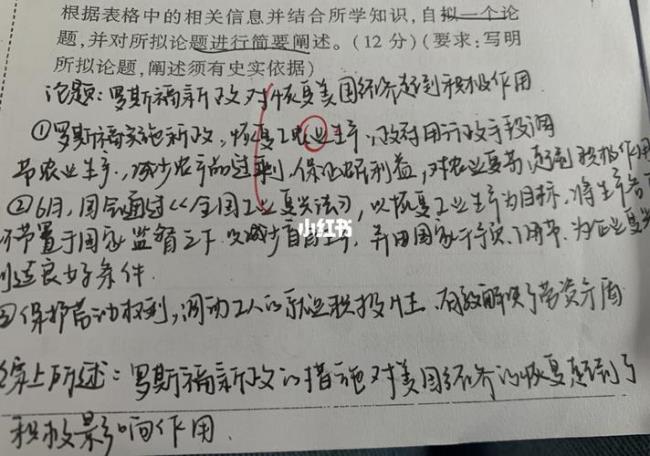 根据表格中的相关信息并结合所学知识,自拟一个论
题,并对所拟论题进行简要阐述。(12分)(要求:写明
所拟论题,阐述须有史实依据)
论题:罗斯福新政对恢复美国经济起到积极作用
①罗斯福实施新政,恢复工农业生产,政府用行政手段调
节农业生产,减少农产品过剩,保证农民利益,对农业复苏起到积极作用
②6月,国会通过《全国工业复兴法》,以恢复工业生产为目标,将生产
环节置于国家监督之下以减少盲目生产,并由国家干预、调节,为企业复兴
创造良好条件.
③保护劳动权利,调动工人的就业积极性,有效解决了劳资矛盾
综上所述:罗斯福新政的措施对美国经济的恢复起到了
积极影响作用.
小红书